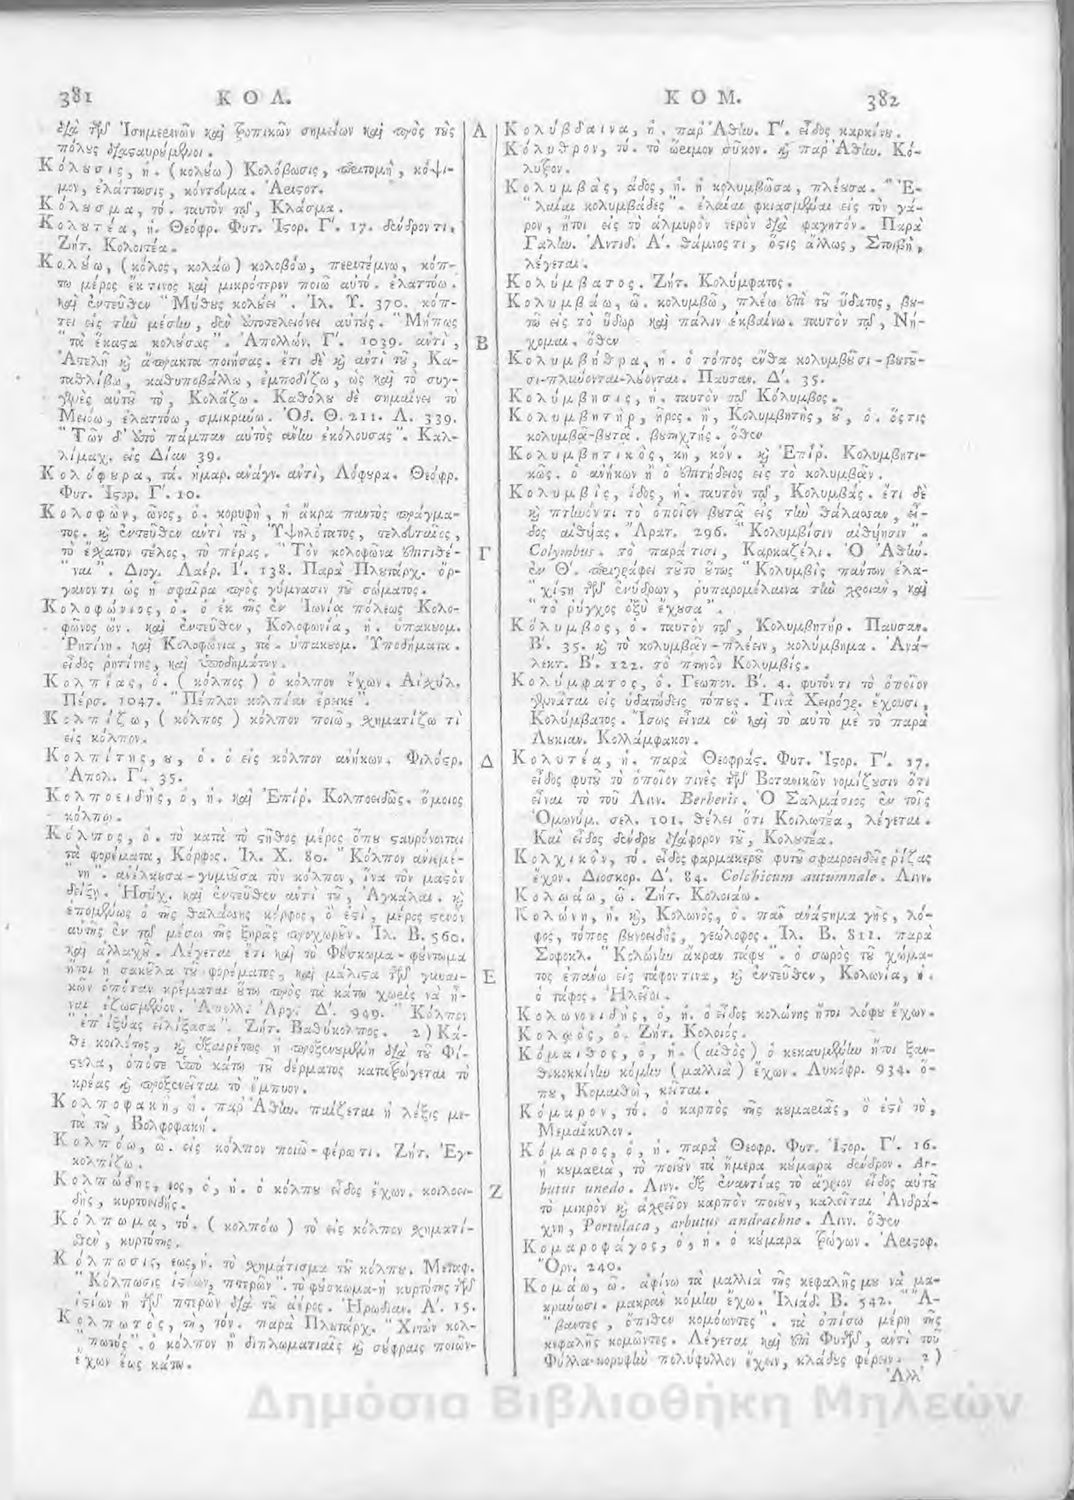 381 ΚΟΛ.
διὰ τῶν Ἰσημερινῶν καὶ τροπικῶν σημείων καὶ πρὸς τοὺς
πόλους διασταυρούμενοι.
Κόλουσις, ἡ. (κολούω) Κολόβωσις, περιτομὴ, κόψι-
μον, ἐλάττωσις, κόντευμα. Ἀριστοτ.
Κόλουσμα, τό. ταυτὸν τῷ, Κλάσμα.
Κολουτέα, ἡ. Θεόφρ. Φυτ. Ἱστορ. Γ΄. 17. δένδρον τι.
Ζήτ. Κολοιτέα.
Κολούω, (κόλος, κολάω) κολοβόω, περιτέμνω, κόπ-
τω μέρος ἔκ τινος καὶ μικρότερον ποιῶ αὐτό. ἐλαττόω.
καὶ ἐντεῦθεν "Μύθους κολούει". Ἰλ. Υ. 370. κόπ-
τει εἰς τὴν μέσην, δὲν ἀποτελειόνει αὐτούς. "Μήπως
"τὰ ἕκαστα κολούσας". Ἀπολλών. Γ΄. 1039. ἀντὶ,
Ἀτελῆ καὶ ἄπρακτα ποιήσας. ἔτι δὲ καὶ ἀντὶ τοῦ, Κα-
ταθλίβω, καθυποβάλλω, ἐμποδίζω, ὡς καὶ τὸ συγ-
γενὲς αὐτοῦ τὸ, Κολάζω. Καθόλου δὲ σημαίνει τὸ
Μειόω, ἐλαττόω, σμικρύνω. Ὀδ. Θ. 211. Λ. 339.
"Τῶν δ' ὑπὸ πάμπαν αὐτὸς ἄνην ἐκόλουσας". Καλ-
λίμαχ. εἰς Δίαν 39.
Κολόφυρα, τά. ἡμαρ. ἀνάγν. ἀντὶ, Λόφυρα. Θεόφρ.
Φυτ. Ἱστορ. Γ΄. 10.
Κολοφὼν, ῶνος, ὁ. κορυφὴ, ἡ ἄκρα παντὸς πράγμα-
τος. καὶ ἐντεῦθεν ἀντὶ τοῦ, Ὑψηλότατος, τελευταῖος,
τὸ ἔσχατον τέλος, τὸ πέρας. "Τὸν κολοφῶνα ἐπιτιθέ-
"ναι". Διογ. Λαέρ. Γ΄. 138. Παρὰ Πλουτάρχ. ὄρ-
γανόν τι ὡς ἡ σφαῖρα πρὸς γύμνασιν τοῦ σώματος.
Κολοφώνιος, ὁ. ὁ ἐκ τῆς ἐν Ἰωνίᾳ πόλεως Κολο-
φῶνος ὤν. καὶ ἐντεῦθεν, Κολοφωνία, ἡ. ὑπακουομ.
Ῥητίνη. καὶ Κολοφώνια, τά. ὑπακουομ. Ὑποδήματα.
εἶδος ῥητίνης, καὶ ὑποδημάτων.
Κολπίας, ὁ. (κόλπος) ὁ κόλπον ἔχων. Αἰσχύλ.
Πέρσ. 1047. "Πέπλον κολπίαν ἔρεικε".
Κολπίζω, (κόλπος) κόλπον ποιῶ, σχηματίζω τὶ
εἰς κόλπον.
Κολπίτης, ου, ὁ. ὁ εἰς κόλπον ἀνήκων. Φιλόστρ.
Ἀπολ. Γ΄. 35.
Κολποειδὴς, ὁ, ἡ. καὶ Ἐπίρ. Κολποειδῶς. ὅμοιος
κόλπῳ.
Κόλπος, ὁ. τὸ κατὰ τὸ στῆθος μέρος ὅπου σταυρόνονται
τὰ φορέματα, Κόρφος. Ἰλ. Χ. 80. "Κόλπον ἀνιεμέ-
"νη". ἀνέλκουσα-γυμνοῦσα τὸν κόλπον, ἵνα τὸν μαστὸν
δείξῃ. Ἡσύχ. καὶ ἐντεῦθεν ἀντὶ τοῦ, Ἀγκάλαι. καὶ
ἑπομένως ὁ τῆς θαλάσσης κόρφος, ὅ ἐστι, μέρος στενὸν
αὐτῆς ἐν τῷ μέσῳ τῆς ξηρᾶς προχωροῦν. Ἰλ. Β. 560.
καὶ ἀλλαχοῦ. Λέγεται ἔτι καὶ τὸ Φούσκωμα-φούντωμα
ἤτοι ἡ σακούλα τοῦ φορέματος, καὶ μάλιστα τῶν γυναι-
κῶν ὁπόταν κρέμαται οὕτω πρὸς τὰ κάτω χωρὶς νὰ ἦ-
ναι ἐζωσμένον. Ἀπολλ. Ἀργ. Δ΄. 949. "Κόλπον
"ἐπ' ἰξύας εἱλίξασα". Ζήτ. Βαθύκολπος. 2) Κά-
θε κοιλότης, καὶ ἐξαιρέτως ἡ προξενουμένη διὰ τοῦ Φί-
στελα, ὁπότε ὑπὸ κάτω τοῦ δέρματος κατατρώγεται τὸ
κρέας καὶ προξενεῖται τὸ ἔμπυον.
Κολποφακὴ, ἡ. παρ' Ἀθήν. παίζεται ἡ λέξις με-
τὰ τοῦ, Βολφοφακή.
Κολπόω, ῶ. εἰς κόλπον ποιῶ-φέρω τι. Ζήτ. Ἐγ-
κολπίζω.
Κολπώδης, εος, ὁ, ἡ. ὁ κόλπου εἶδος ἔχων. κοιλοει-
δὴς, κυρτοειδής.
Κόλπωμα, τό. (κολπόω) τὸ εἰς κόλπον σχηματι-
σθὲν, κυρτότης.
Κόλπωσις, εως, ἡ. τὸ σχημάτισμα τοῦ κόλπου. Μεταφ.
"Κόλπωσις ἱστίων, πτερῶν". τὸ φούσκωμα-ἡ κυρτότης τῶν
ἱστίων ἢ τῶν πτερῶν διὰ τοῦ ἀέρος. Ἡρωδιαν. Α΄. 15.
Κολπωτὸς, τὴ, τόν. παρὰ Πλουτάρχ. "Χιτὼν κολ-
"πωτός". ὁ κόλπον ἢ διπλωματιαῖς καὶ σούφραις ποιῶν-
ἔχων ἕως κάτω.
Α
Β
Γ
Δ
Ε
Ζ
ΚΟΜ. 382
Κολύβδαινα, ἡ. παρ' Ἀθήν. Γ΄. εἶδος καρκίνου.
Κόλυθρον, τό. τὸ ὥριμον σῦκον. καὶ παρ' Ἀθήν. Κό-
λυτρον.
Κολυμβὰς, άδος, ἡ. ἡ κολυμβῶσα, πλέουσα. "Ἐ-
"λαῖαι κολυμβάδες". ἐλαῖαι φκιασμέναι εἰς τὸν γά-
ρον, ἤτοι εἰς τὸ ἁλμυρὸν νερὸν διὰ φαγητόν. Παρὰ
Γαλήν. Ἀντιδ. Α΄. θάμνος τι, ὅστις ἄλλως, Στοιβὴ,
λέγεται.
Κολύμβατος. Ζήτ. Κολύμφατος.
Κολυμβάω, ῶ. κολυμβῶ, πλέω ἐπὶ τοῦ ὕδατος, βου-
τῶ εἰς τὸ ὕδωρ καὶ πάλιν ἐκβαίνω. ταυτὸν τῷ, Νή-
χομαι. ὅθεν
Κολυμβήθρα, ἡ. ὁ τόπος ἔνθα κολυμβοῦσι-βουτοῦ-
σι-πλύνονται-λούονται. Παυσαν. Δ΄. 35.
Κολύμβησις, ἡ. ταυτὸν τῷ Κόλυμβος.
Κολυμβητὴρ, ῆρος. ἢ, Κολυμβητὴς, οῦ, ὁ. ὅστις
κολυμβᾷ-βουτᾷ. βουτηχτής. ὅθεν
Κολυμβητικὸς, κὴ, κόν. καὶ Ἐπίρ. Κολυμβητι-
κῶς. ὁ ἀνήκων ἢ ὁ ἐπιτήδειος εἰς τὸ κολυμβᾷν.
Κολυμβὶς, ίδος, ἡ. ταυτὸν τῷ, Κολυμβάς. ἔτι δὲ
καὶ πτηνόν τι τὸ ὁποῖον βουτᾷ εἰς τὴν θάλασσαν, εἶ-
δος αἰθυίας. Ἄρατ. 296. "Κολυμβίσιν αἰθυίῃσιν".
Colymbus. τὸ παρά τισι, Καρκαζέλι. Ὁ Ἀθήν.
ἐν Θ΄. περιγράφει τοῦτο οὕτως "Κολυμβὶς πάντων ἐλα-
"χίστη τῶν ἐνύδρων, ῥυπαρομέλαινα τὴν χροιὰν, καὶ
"τὸ ῥύγχος ὀξὺ ἔχουσα".
Κόλυμβος, ὁ. ταυτὸν τῷ, Κολυμβητήρ. Παυσαν.
Β΄. 35. καὶ τὸ κολυμβᾷν-πλέειν, κολύμβημα. Ἀνά-
λεκτ. Β΄. 122. τὸ πτηνὸν Κολυμβίς.
Κολύμφατος, ὁ. Γεωπον. Β΄. 4. φυτόν τι τὸ ὁποῖον
γεννᾶται εἰς ὑδατώδεις τόπους. Τινὰ Χειρόγρ. ἔχουσι,
Κολύμβατος. Ἴσως εἶναι ἓν καὶ τὸ αὐτὸ μὲ τὸ παρὰ
Λουκιαν. Κολλάμφακον.
Κολυτέα, ἡ. παρὰ Θεοφράστ. Φυτ. Ἱστορ. Γ΄. 17.
εἶδος φυτοῦ τὸ ὁποῖον τινὲς τῶν Βοτανικῶν νομίζουσιν ὅτι
εἶναι τὸ τοῦ Λιν. Berberis. Ὁ Σαλμάσιος ἐν τοῖς
Ὁμωνύμ. σελ. 101. θέλει ὅτι Κοιλωτέα, λέγεται.
Καὶ εἶδος δένδρου διάφορον τοῦ, Κολουτέα.
Κολχικὸν, τό. εἶδος φαρμακεροῦ φυτοῦ σφαιροειδεῖς ῥίζας
ἔχον. Διοσκορ. Δ΄. 84. Colchicum autumnale. Λινν.
Κολωάω, ῶ. Ζήτ. Κολοιάω.
Κολώνη, ἡ. καὶ, Κολωνὸς, ὁ. πᾶν ἀνάστημα γῆς, λό-
φος, τόπος βουνοειδὴς, γεώλοφος. Ἰλ. Β. 811. παρὰ
Σοφοκλ. "Κολώνην ἄκραν τάφου". ὁ σωρὸς τοῦ χώμα-
τος ἐπάνω εἰς τάφον τινὰ, καὶ ἐντεῦθεν, Κολωνία, ἡ.
ὁ τάφος. Ἠλεῖοι.
Κολωνοειδὴς, ὁ, ἡ. ὁ εἶδος κολώνης ἤτοι λόφου ἔχων.
Κολωὸς, ὁ. Ζήτ. Κολοιός.
Κόμαιθος, ὁ, ἡ. (αἰθὸς) ὁ κεκαυμένην ἤτοι ξαν-
θικοκκίνην κόμην (μαλλιὰ) ἔχων. Λυκόφρ. 934. ὅ-
που, Κομαιθὼ, κεῖται.
Κόμαρον, τό. ὁ καρπὸς τῆς κουμαριᾶς, ὅ ἐστι τὸ,
Μεμαίκυλον.
Κόμαρος, ὁ, ἡ. παρὰ Θεοφρ. Φυτ. Ἱστορ. Γ΄. 16.
ἡ κουμαριὰ, τὸ ποιοῦν τὰ ἥμερα κούμαρα δένδρον. Ar-
butus unedo. Λινν. ἐξ ἐναντίας τὸ ἄγριον εἶδος αὐτοῦ
τὸ μικρὸν καὶ ἀχρεῖον καρπὸν ποιοῦν, καλεῖται Ἀνδρά-
χνη, Portulaca, arbutus andrachne. Λινν. ὅθεν
Κομαροφάγος, ὁ, ἡ. ὁ κούμαρα τρώγων. Ἀριστοφ.
Ὄρν. 240.
Κομάω, ῶ. ἀφίνω τὰ μαλλιὰ τῆς κεφαλῆς μου νὰ μα-
κρυύωσι. μακρὰν κόμην ἔχω. Ἰλιάδ. Β. 542. "Ἄ-
"βαντες, ὄπιθεν κομόωντες". τὰ ὀπίσω μέρη τῆς
κεφαλῆς κομῶντες. Λέγεται καὶ ἐπὶ Φυτῶν, ἀντὶ τοῦ
Φύλλα-κορυφὴν πολύφυλλον ἔχειν, κλάδους φέρειν. 2)
Ἀλλ'
Δημόσια Βιβλιοθήκη Μηλεών